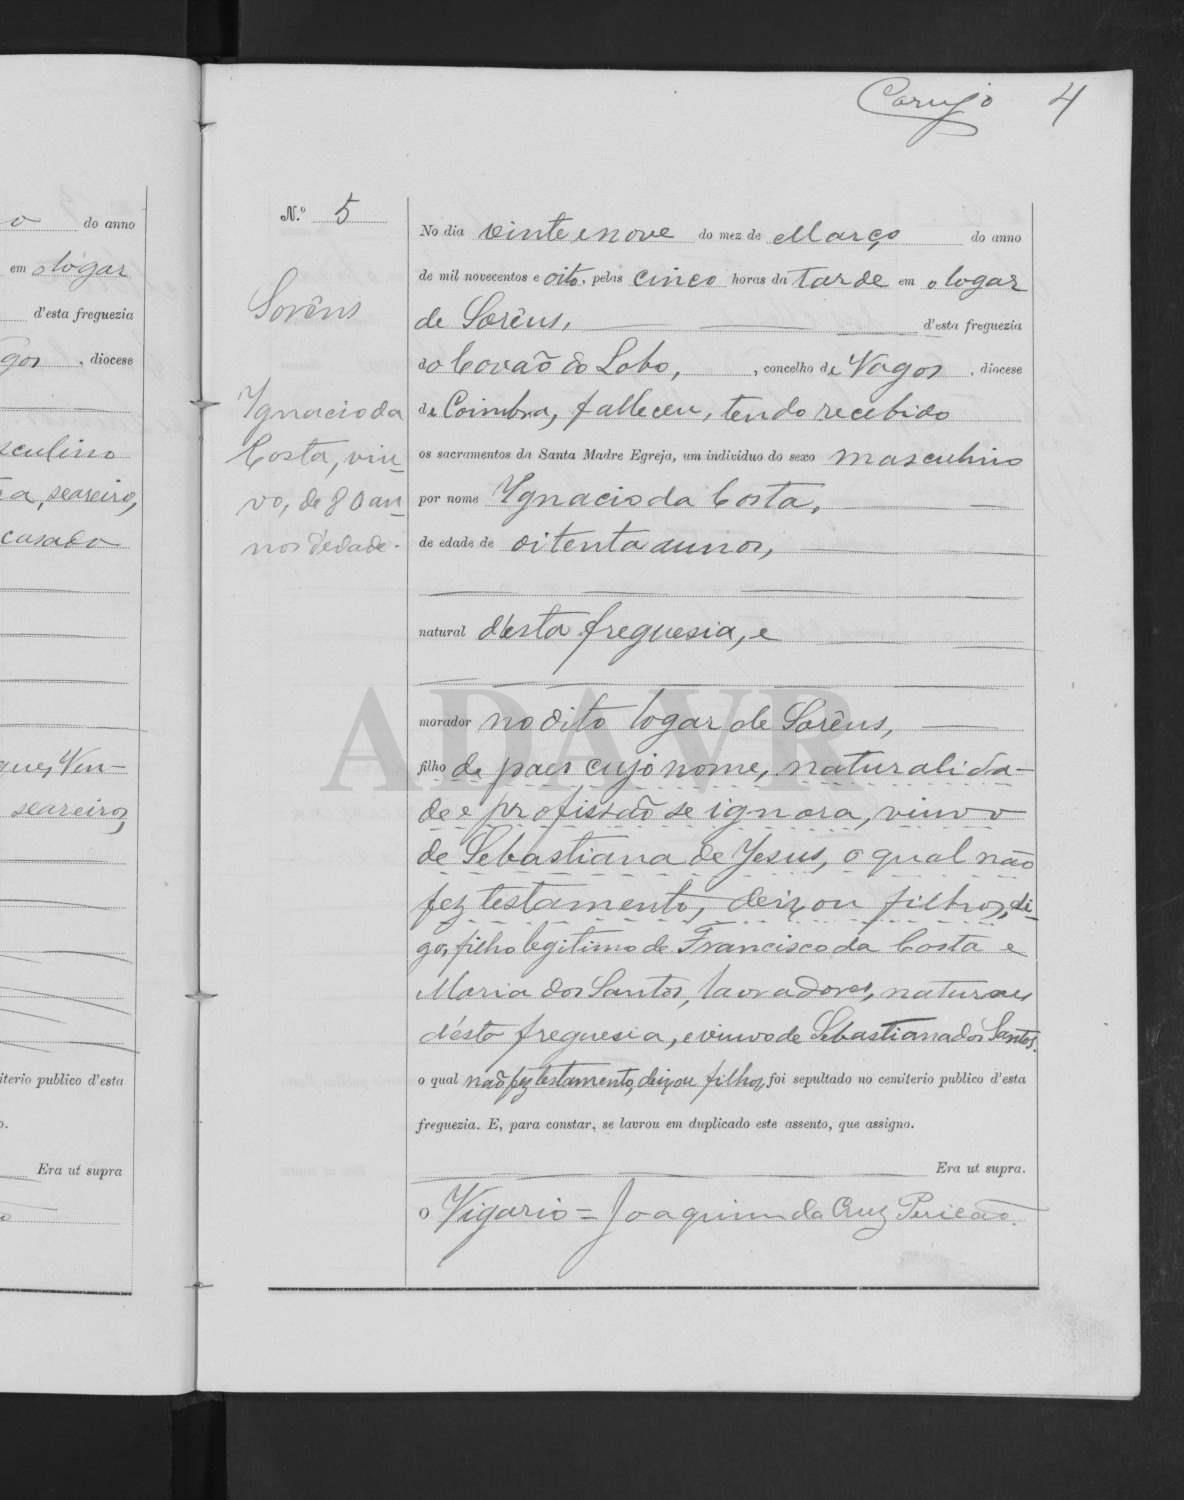 Carujo 4
o do anno
em o logar
d'esta freguezia
gos , diocese
sculino
a, seareiro,
casado
seareiro,
iterio publico d'esta
o.
Era ut supra
N.º 5
Sorêns
Ygnacio da
Costa, viu-
vo, de 80 an-
nos d'edade.
No dia vinte e nove do mez de Março do anno
de mil novecentos e oito, pelas cinco horas da tarde em o logar
de Sorêns, d'esta freguezia
do Covaõ do Lobo, , concelho de Vagos , diocese
de Coimbra, falleceu, tendo recebido
os sacramentos da Santa Madre Egreja, um individuo do sexo masculino
por nome Ygnacio da Costa,
de edade de oitenta annos,
natural d'esta freguesia, e
morador no dito logar de Sorêns,
filho de paes cujo nome, naturalida-
de e profissaõ se ignora, viuvo
de Sebastiana de Jesus, o qual não
fez testamento, deixou filhos, di-
go, filho legitimo de Francisco da Costa e
Maria dos Santos, lavradores, naturaes
d'ésta freguesia, e viuvo de Sebastiana dos Santos.
o qual naõ fez testamento, deixou filhos, foi sepultado no cemiterio publico d'esta
freguezia. E, para constar, se lavrou em duplicado este assento, que assigno.
Era ut supra.
O Vigario = Joaquim da Cruz Pericaõ.
ADAVR